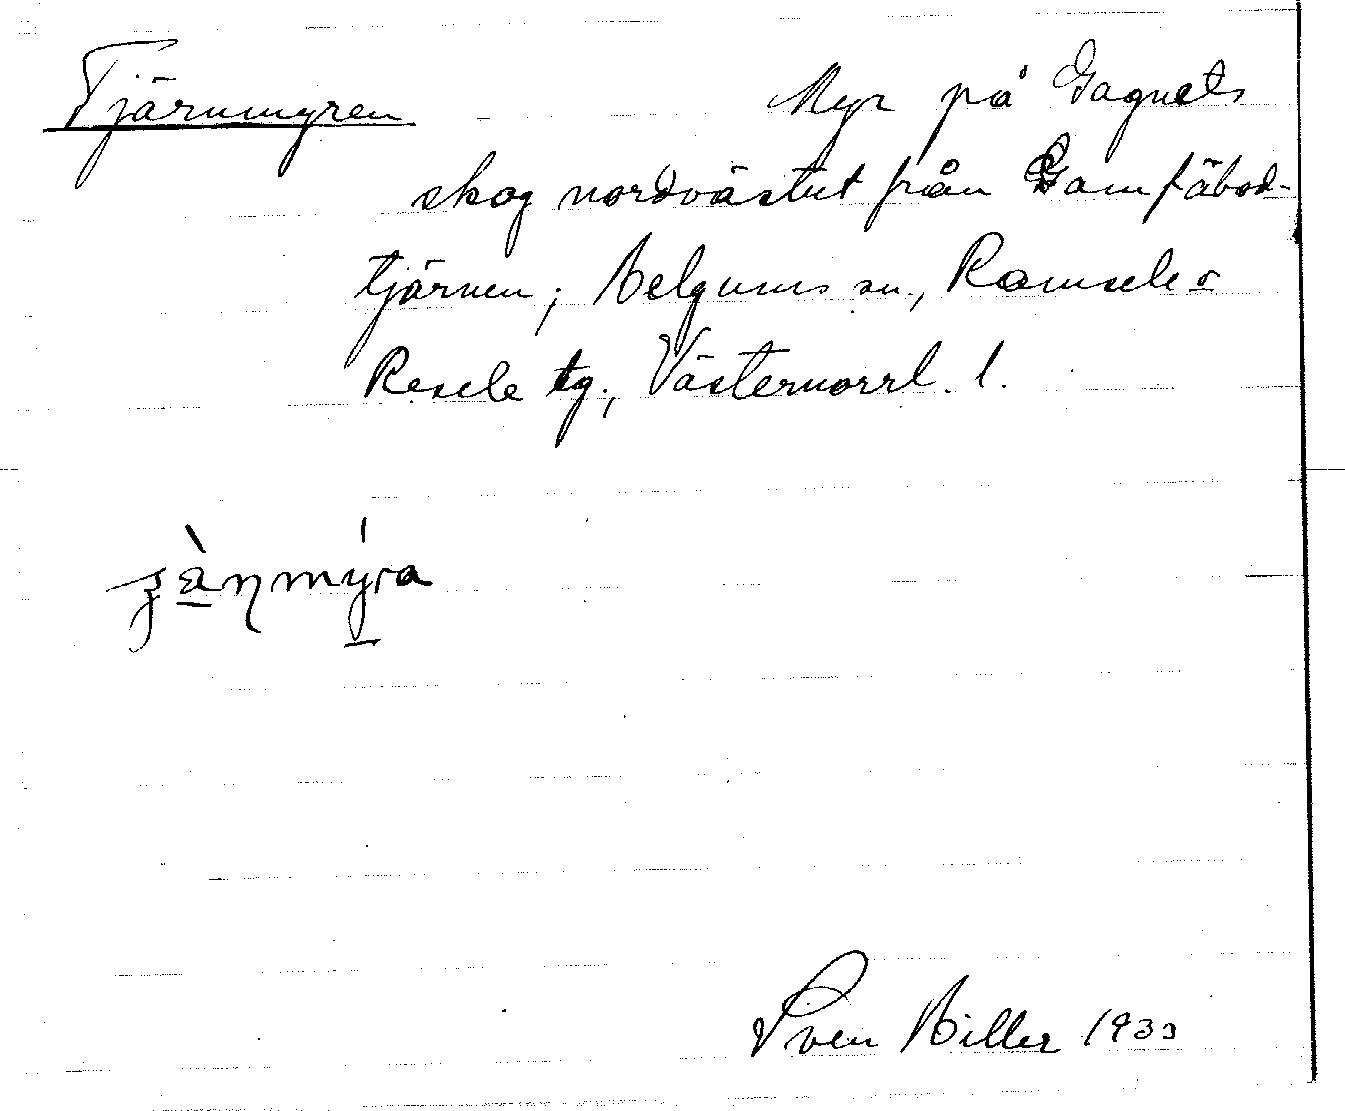 Tjärnmyren Myr på Gagnets
skog nordvästut från Gamfäbod-
tjärnen; Helgums sn., Ramsele o
Resele tg., Västernorrl. l.
Sven Biller 1933